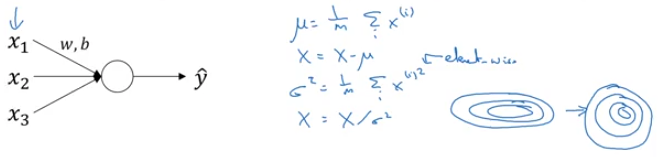 x₁ w, b
x₂ ŷ
x₃
μ = 1/m Σᵢ x⁽ⁱ⁾
x = x - μ
σ² = 1/m Σᵢ x⁽ⁱ⁾² ← element-wise
x = x/σ²